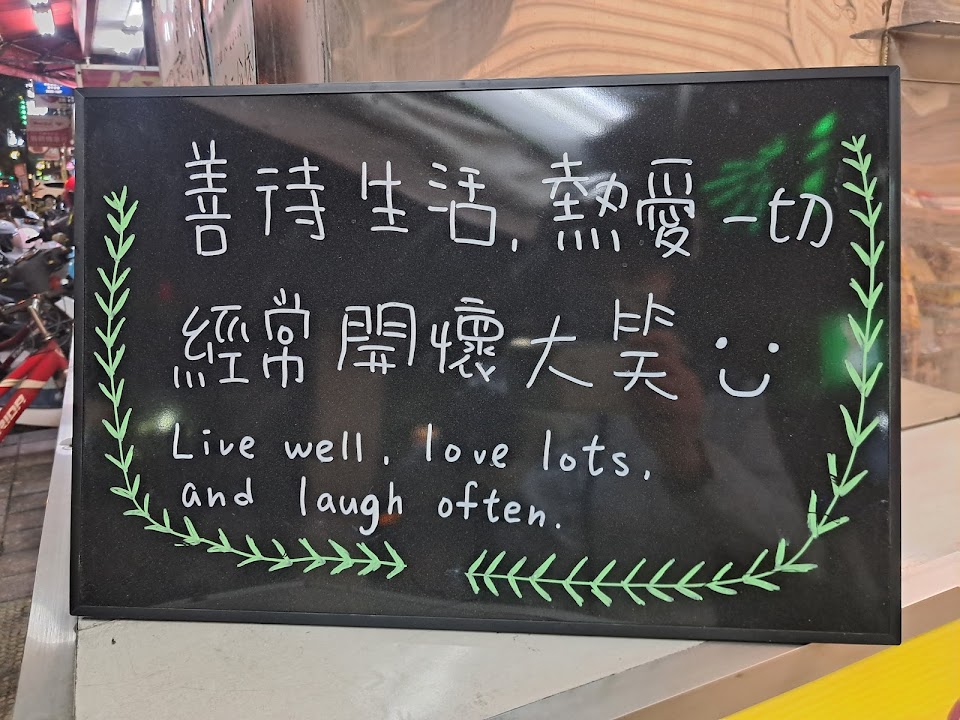 善待生活,熱愛一切
經常開懷大笑
Live well, love lots,
and laugh often.